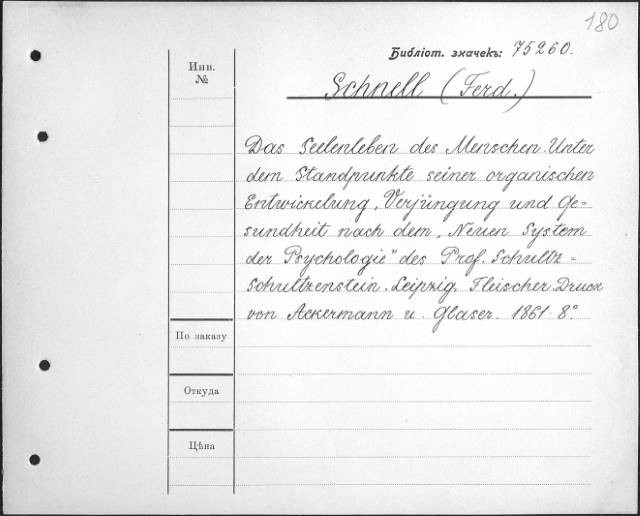 180
Библіот. значекъ: 75260.
Инв.
№
Schnell (Ferd.)
Das Seelenleben des Menschen. Unter
dem Standpunkte seiner organischen
Entwickelung, Verjüngung und Ge=
sundheit nach dem „Neuen System
der Psychologie" des Prof. Schultz =
Schultzenstein. Leipzig, Fleischer. Druck
von Ackermann u. Glaser. 1861. 8°.
По заказу
Откуда
Цѣна